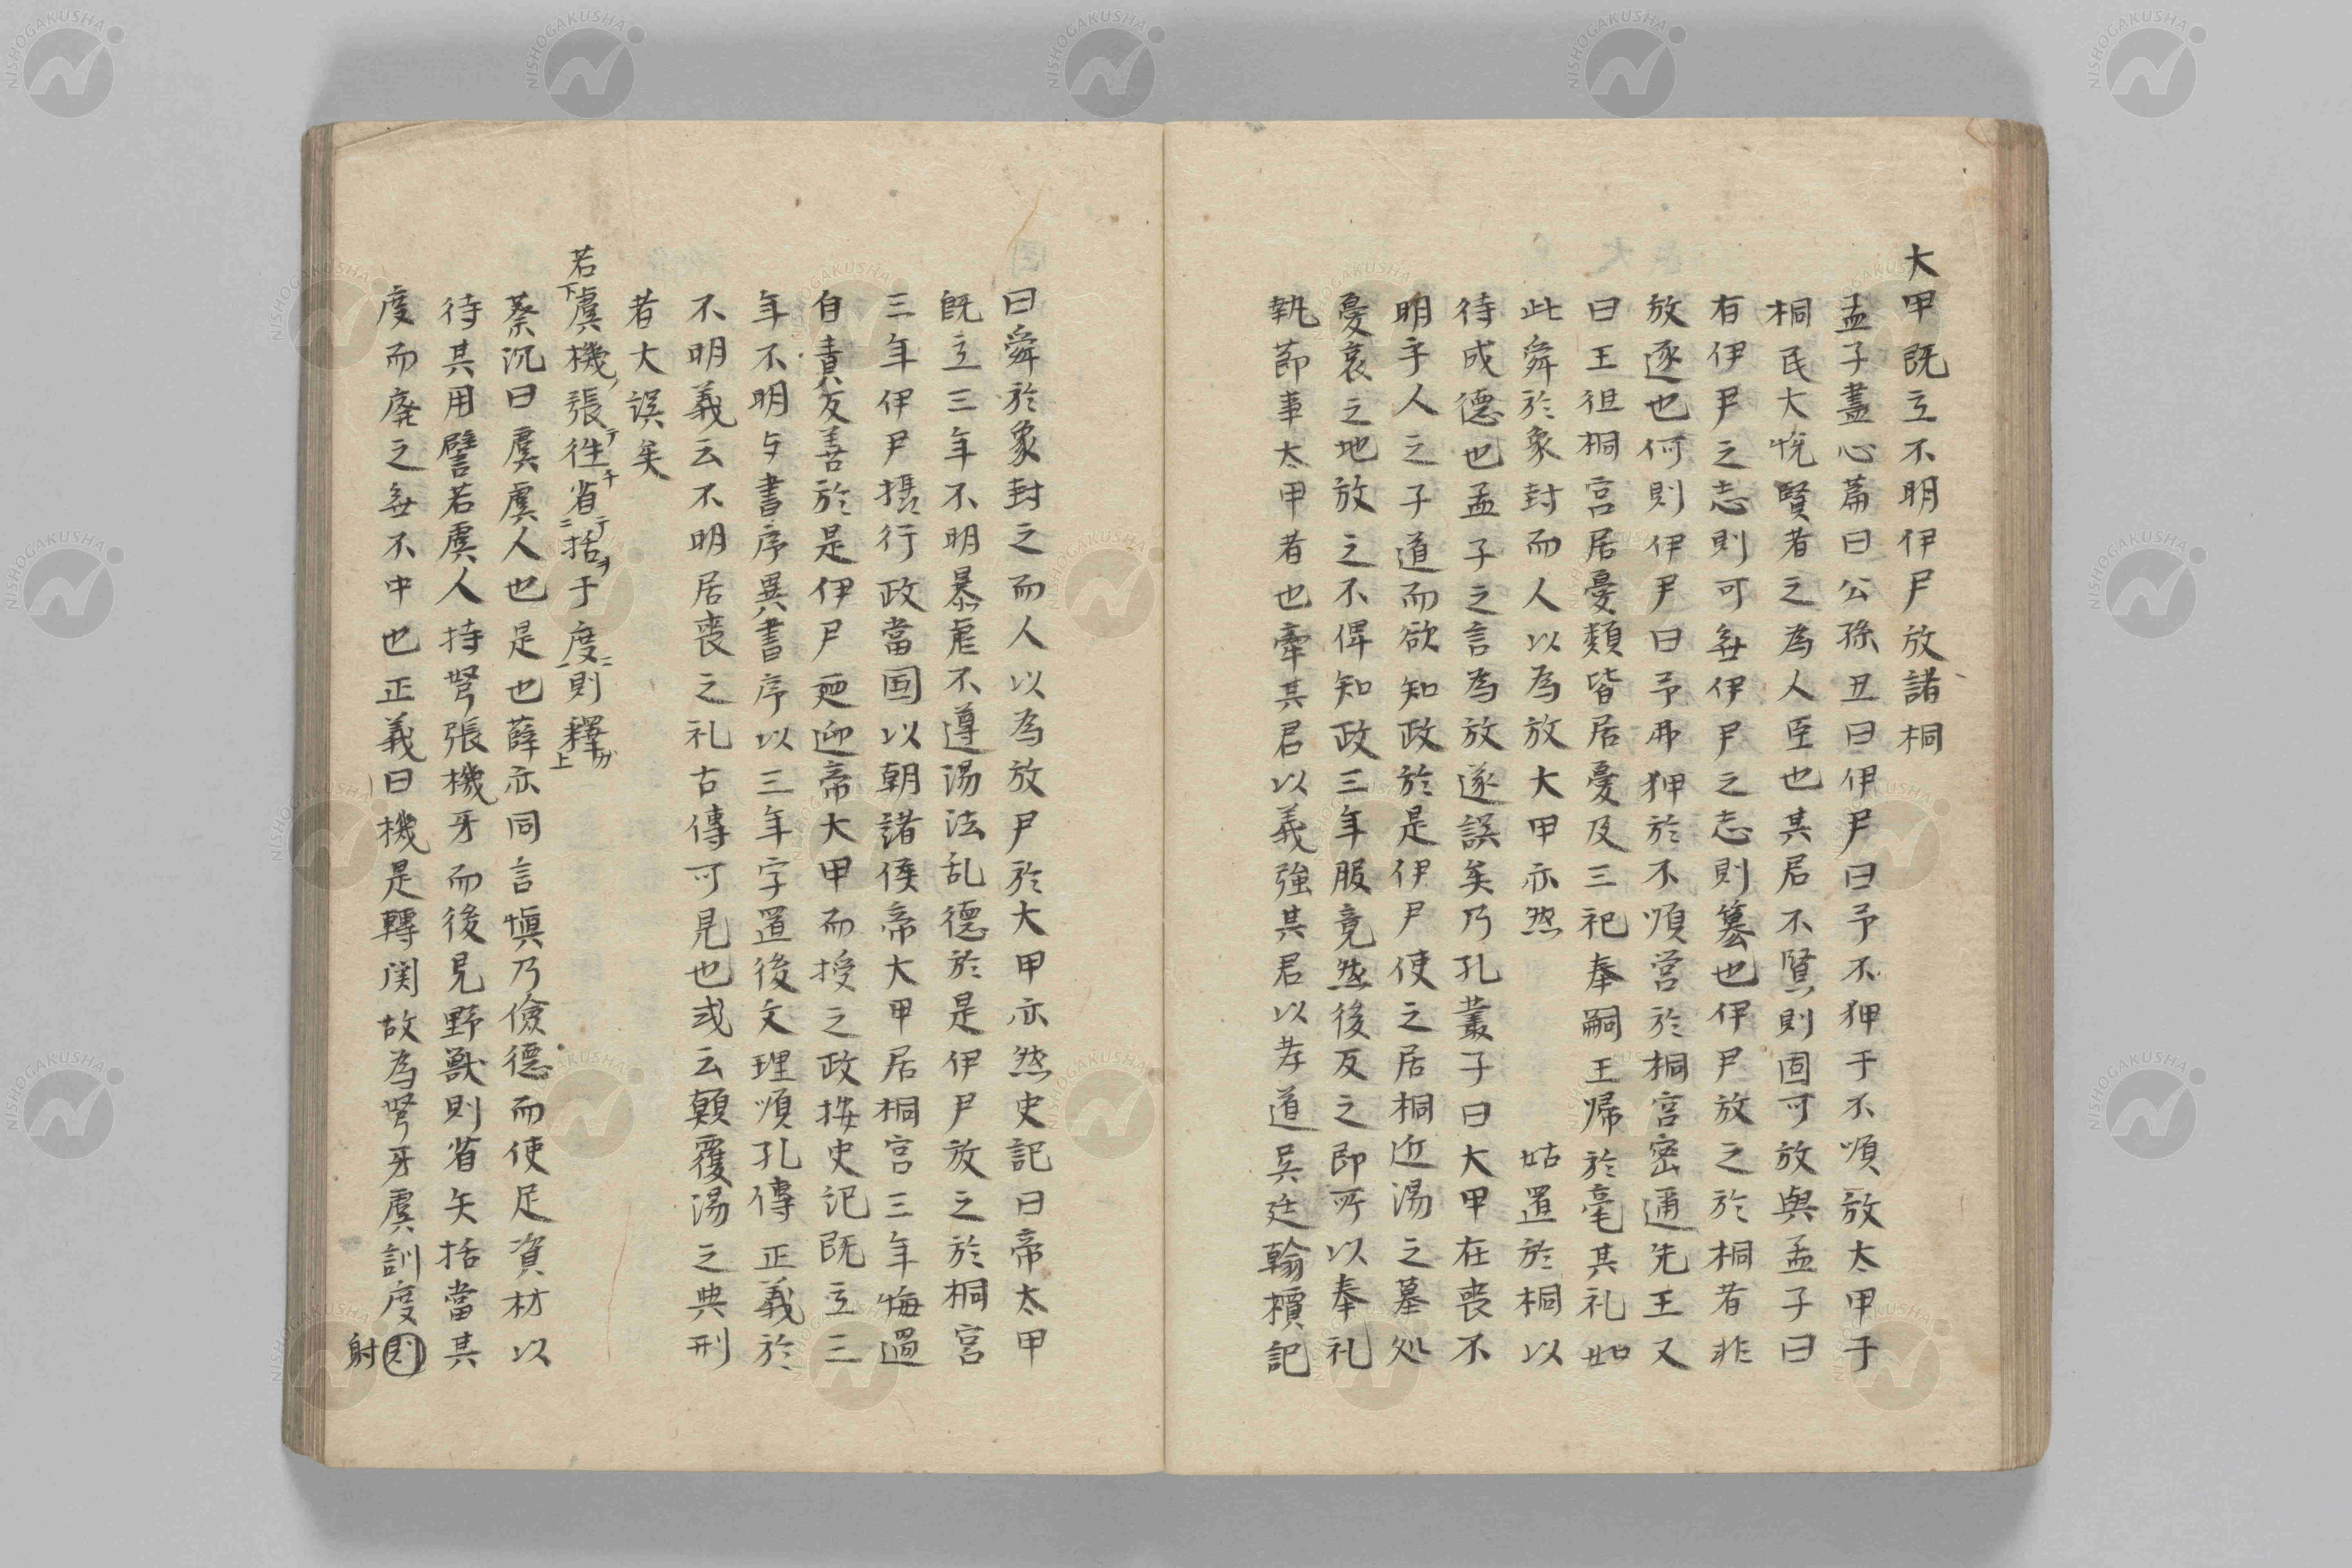 大甲既立不明伊尹放諸桐
孟子盡心篇曰公孫丑曰伊尹曰予不狎于不順放太甲于
桐民大悅賢者之為人臣也其君不賢則固可放與孟子曰
有伊尹之志則可無伊尹之志則簒也伊尹放之於桐者非
放逐也何則伊尹曰予弗狎於不順営於桐宮密邇先王又
曰王徂桐宮居憂類皆居憂及三祀奉嗣王帰於亳其礼如
此舜於象封而人以為放大甲亦然 姑置於桐以
待成德也孟子之言為放遂誤矣乃孔叢子曰大甲在喪不
明乎人之子道而欲知政於是伊尹使之居桐近湯之墓処
憂哀之地放之不俾知政三年服竟然後反之即所以奉礼
執莭事太甲者也牽其君以義強其君以孝道呉廷翰櫝記
曰舜於象封之而人以為放尹於大甲亦然史記曰帝太甲
既立三年不明暴虐不遵湯法乱德於是伊尹放之於桐宮
三年伊尹摂行政當国以朝諸侯帝大甲居桐宮三年悔過
自責反善於是伊尹廼迎帝大甲而授之政按史記既立三
年不明与書序異書序以三年字置後文理順孔傳正義於
不明義云不明居喪之礼古傳可見也或云顛覆湯之典刑
者大誤矣
若虞機張徃省括于度則釋
蔡沉曰虞虞人也是也薛亦同言愼乃儉德而使足資材以
待其用譬若虞人持弩張機牙而後見野獣則省矢括當其
度而廃之無不中也正義曰機是轉関故為弩牙虞訓度則
射
NISHOGAKUSHA